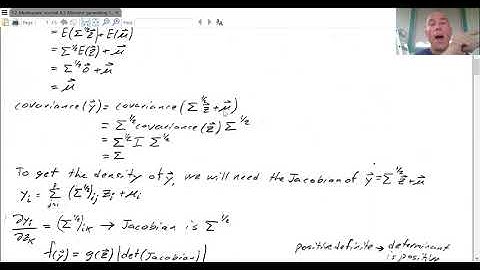 = E(Σ^{1/2} z⃗) + E(μ⃗)
= Σ^{1/2} E(z⃗) + μ⃗
= Σ^{1/2} 0⃗ + μ⃗
= μ⃗
covariance(y⃗) = covariance(Σ^{1/2} z⃗ + μ⃗)
= Σ^{1/2} covariance(z⃗) Σ^{1/2}
= Σ^{1/2} I Σ^{1/2}
= Σ
To get the density of y⃗, we will need the Jacobian of y⃗ = Σ^{1/2} z⃗ + μ⃗
y_i = Σ_{j=1} (Σ^{1/2})_{ij} z_j + μ_i
∂y_i/∂z_k = (Σ^{1/2})_{ik} → Jacobian is Σ^{1/2}
f(y⃗) = g(z⃗) |det(Jacobian)|
positive definite → determinant
is positive